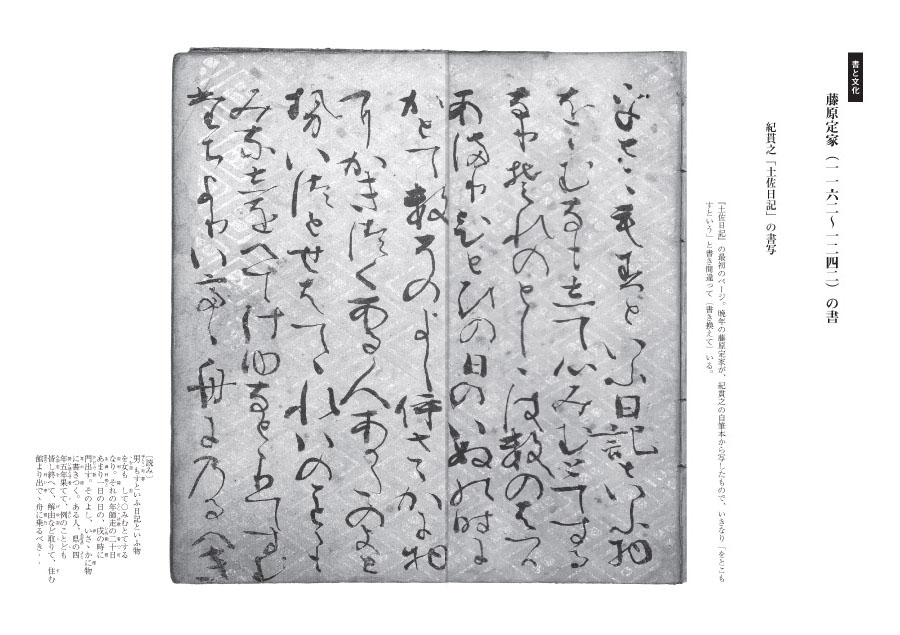 書と文化
藤原定家（一一六二～一二四二）の書
紀貫之「土佐日記」の書写
『土佐日記』の最初のページ。晩年の藤原定家が、紀貫之の自筆本から写したもので、いきなり「をとこも
すという」と書き間違って（書き換えて）いる。
をとこもすといふ日記といふ物
をゝむなもして心みむとてする
なりそれのとしゝはすのはつか
あまりひとひの日のいぬの時に
かとてすそのよしいさゝか物
にかきつくある人あかたのよと
せいつとせはてゝれいのことゝも
みなしをへてけゆなとゝりてすむ
たちよりいてゝ舟にのるへき
［読み］
男もすといふ日記といふ物
を女もして心みむとてする
なり。それの年師走の二十日
あまり一日の日の、戌の時に
門出す。そのよし、いさゝかに物
に書きつく。ある人、県の四
年五年果てて、例のことども
皆し終へて、解由など取りて、住む
館より出でゝ舟に乗るべき‥